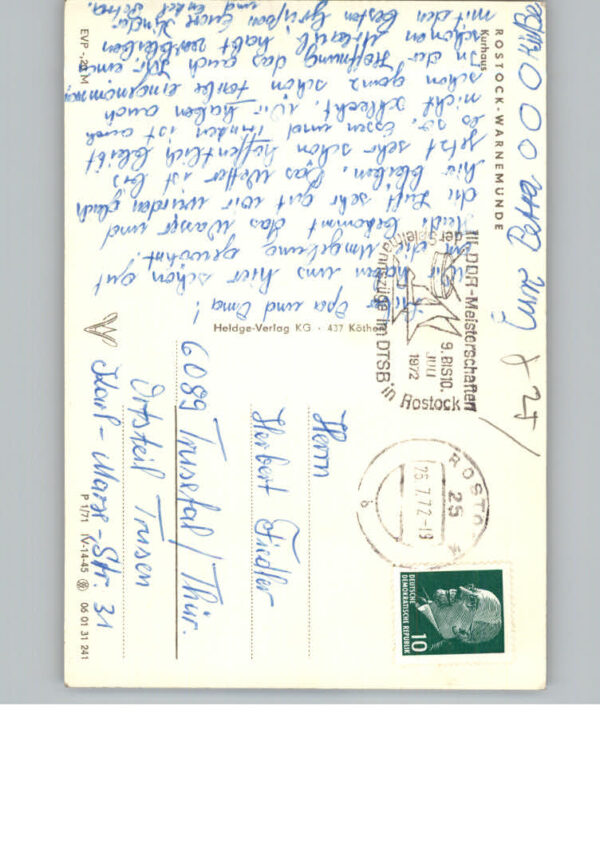 ROSTOCK-WARNEMÜNDE
Kurhaus
Opa und Oma!
Wir haben uns hier schon gut
in die Umgebung gewöhnt.
Mich bekommt das Wasser und
die Luft sehr gut wir würden gleich
hier bleiben. Das Wetter ist bis
jetzt sehr schön hoffentlich bleibt
es so, Essen und trinken ist auch
nicht schlecht. Wir haben auch
schon ganz schön farbe eingenommen
In der Hoffnung das auch Ihr einen
schönen Urlaub habt verbleiben
mit den besten Grüßen Eure Kinder
und Enkel Petra.
EVP -,20 M
Heldge-Verlag KG · 437 Köthen
III. DDR-Meisterschaften
der
im DTSB in Rostock
9. BIS 10.
JULI
1972
ROSTOCK
25
25.7.72-19
b
DEUTSCHE
DEMOKRATISCHE REPUBLIK
10
Herrn
Herbert Fiedler
6089 Trusetal/Thür.
Ortsteil Trusen
Karl-Marx-Str. 31
P 1/71 IV-14-45 06 01 31 241